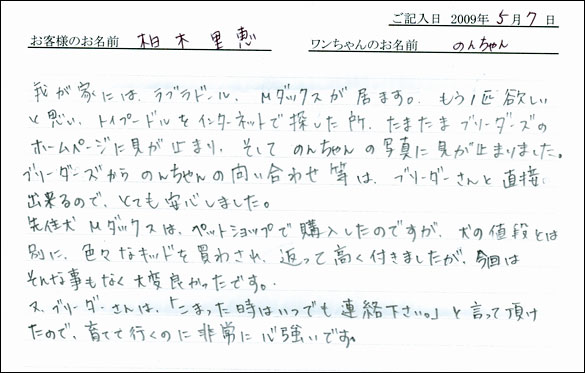 ご記入日 2009年 5月 7日
お客様のお名前 柏木里恵 ワンちゃんのお名前 のんちゃん
我が家には、ラブラドール、Mダックスが居ます。もう1匹欲しい
と思い、トイプードルをインターネットで探した所、たまたまブリーダーズの
ホームページに見が止まり、そしてのんちゃんの写真に見が止まりました。
ブリーダーズからのんちゃんの問い合わせ等は、ブリーダーさんと直接
出来るので、とても安心しました。
先住犬Mダックスは、ペットショップで購入したのですが、犬の値段とは
別に、色々なキッドを買わされ、返って高く付きましたが、今回は
そんな事もなく大変良かったです。
又、ブリーダーさんは、「こまった時はいつでも連絡下さい。」と言って頂け
たので、育てて行くのに非常に心強いです。